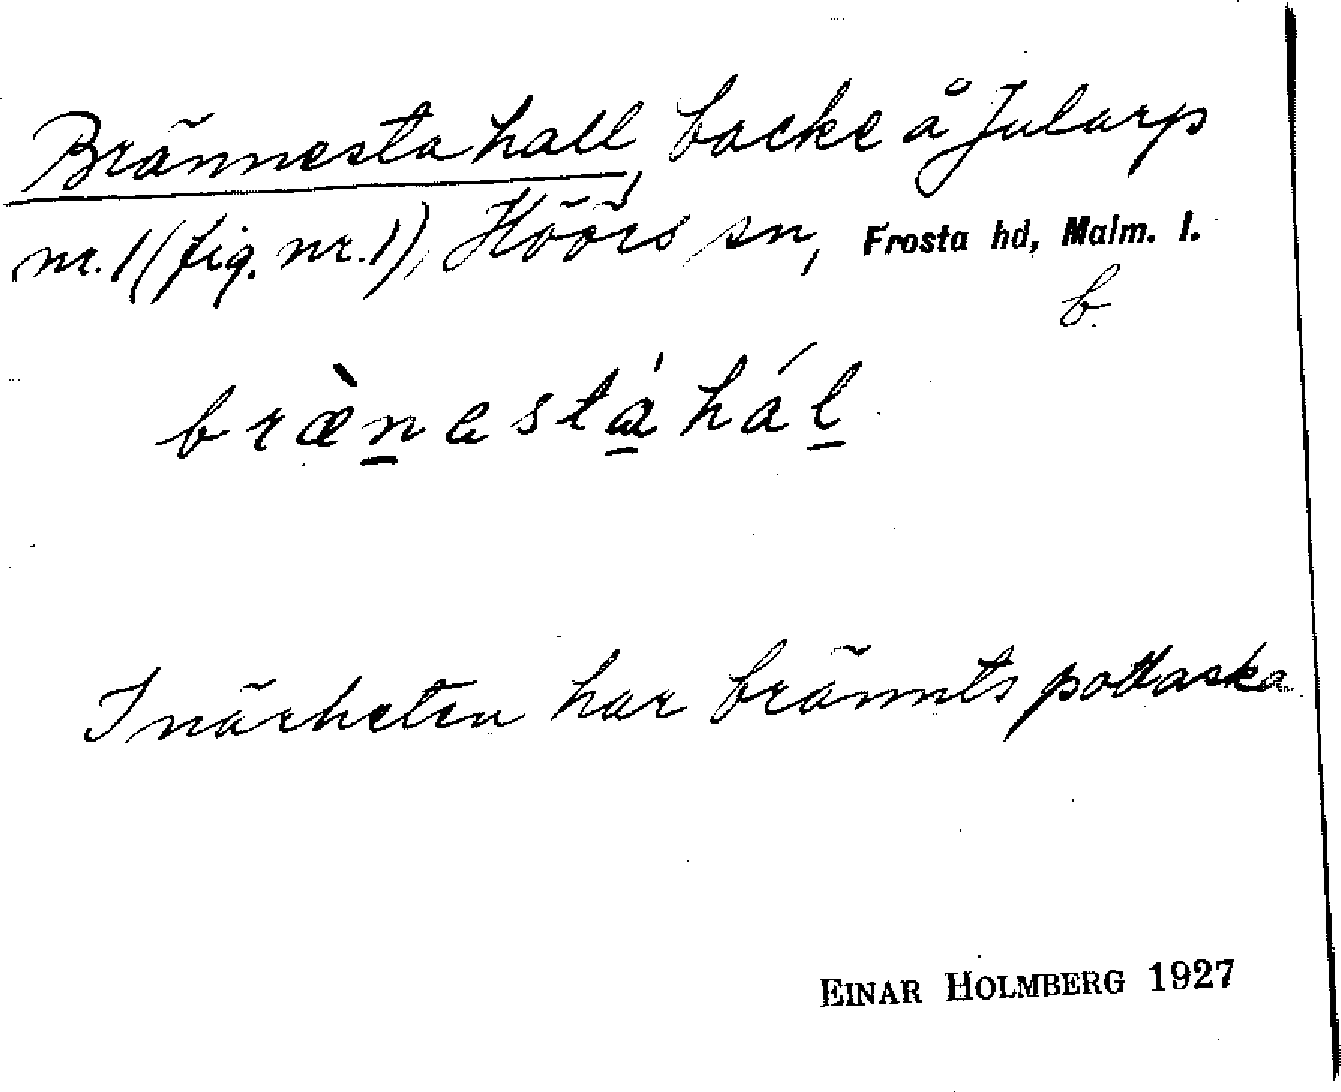 Brännesta hall, backe å Jularp
nr. 1 (fig. nr. 1), Höörs sn, Frosta hd, Malm. l.
b.
bræ̀n̠esta̠̍ hál̠
I närheten har brännts pottaska
EINAR HOLMBERG 1927